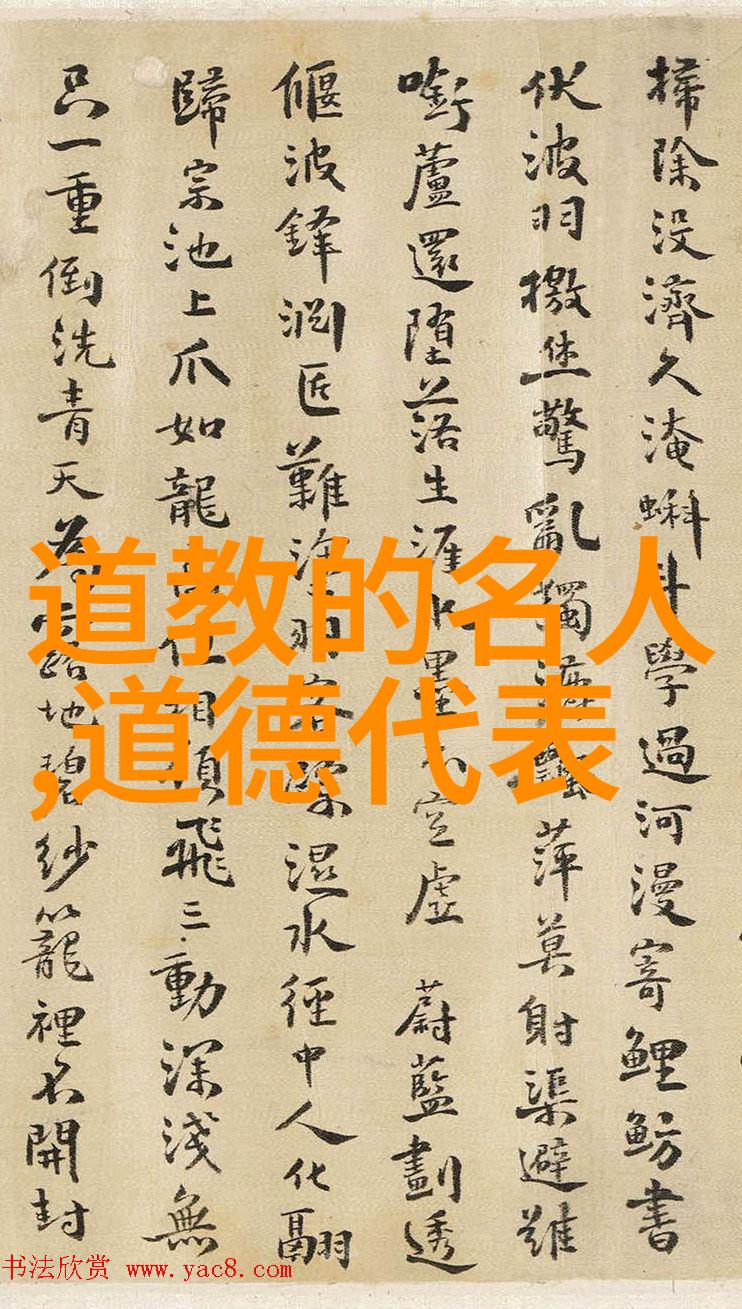 掃除没濟久淹蝌蚪學過河漫寄鯉魴書
伏波羽檄驚亂獨萍莫射渠避難
啣蘆還墮落生涯水墨不空虛 蔚藍劃透
偃波鋒澗匠難羽濕水徑中人化翮
歸宗池上爪如龍飛三動深淺無
只一重倒洗青天為露地碧紗籠裡不開封
道教的名人
,道德代表
书法欣赏 www.yac8.com